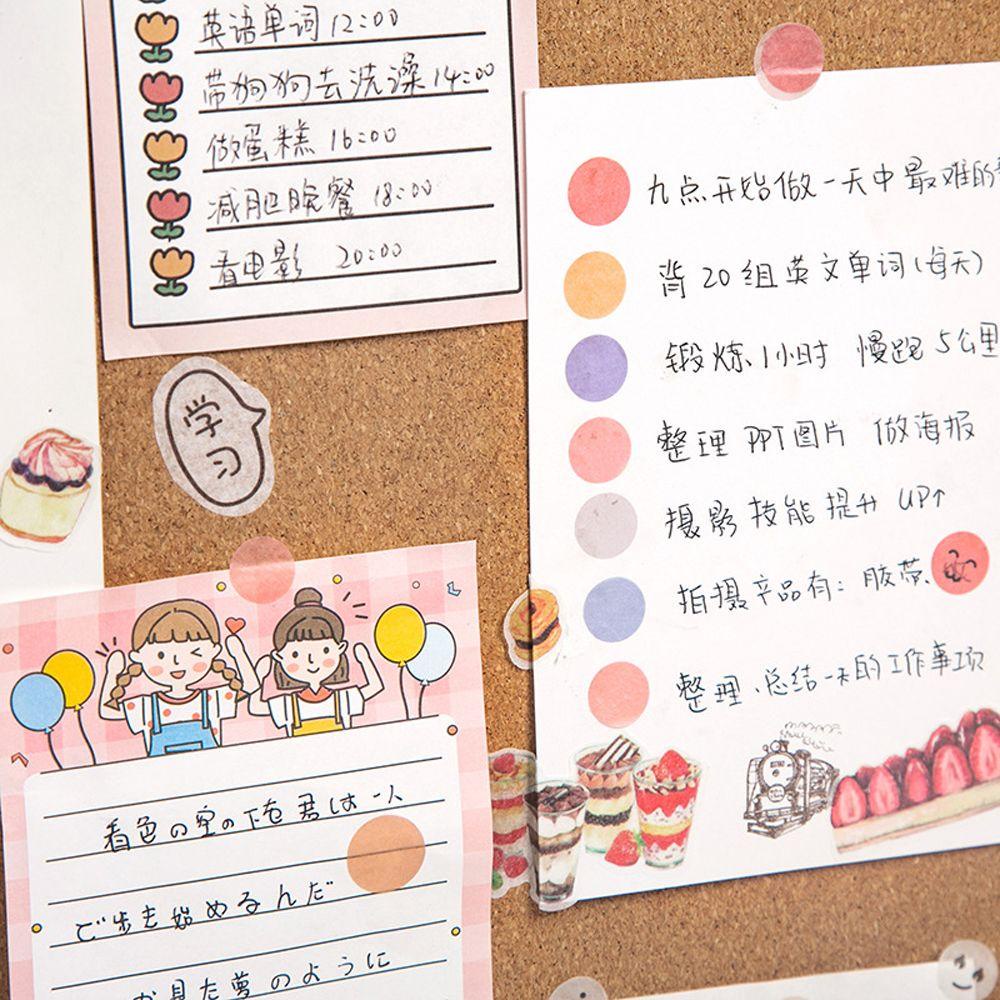 英语单词 12:00
带狗狗去洗澡 14:00
做蛋糕 16:00
减肥晚餐 18:00
看电影 20:00
学
习
九点开始做一天中最难的
背 20 组英文单词(每天)
锻炼 1小时 慢跑 5公里
整理 PPT图片 做海报
摄影技能提升 UP↑
拍摄产品有: 胶带、
整理、总结一天的工作事项
着色の空の下を君は一人
で歩き始めるんだ
見た夢のように